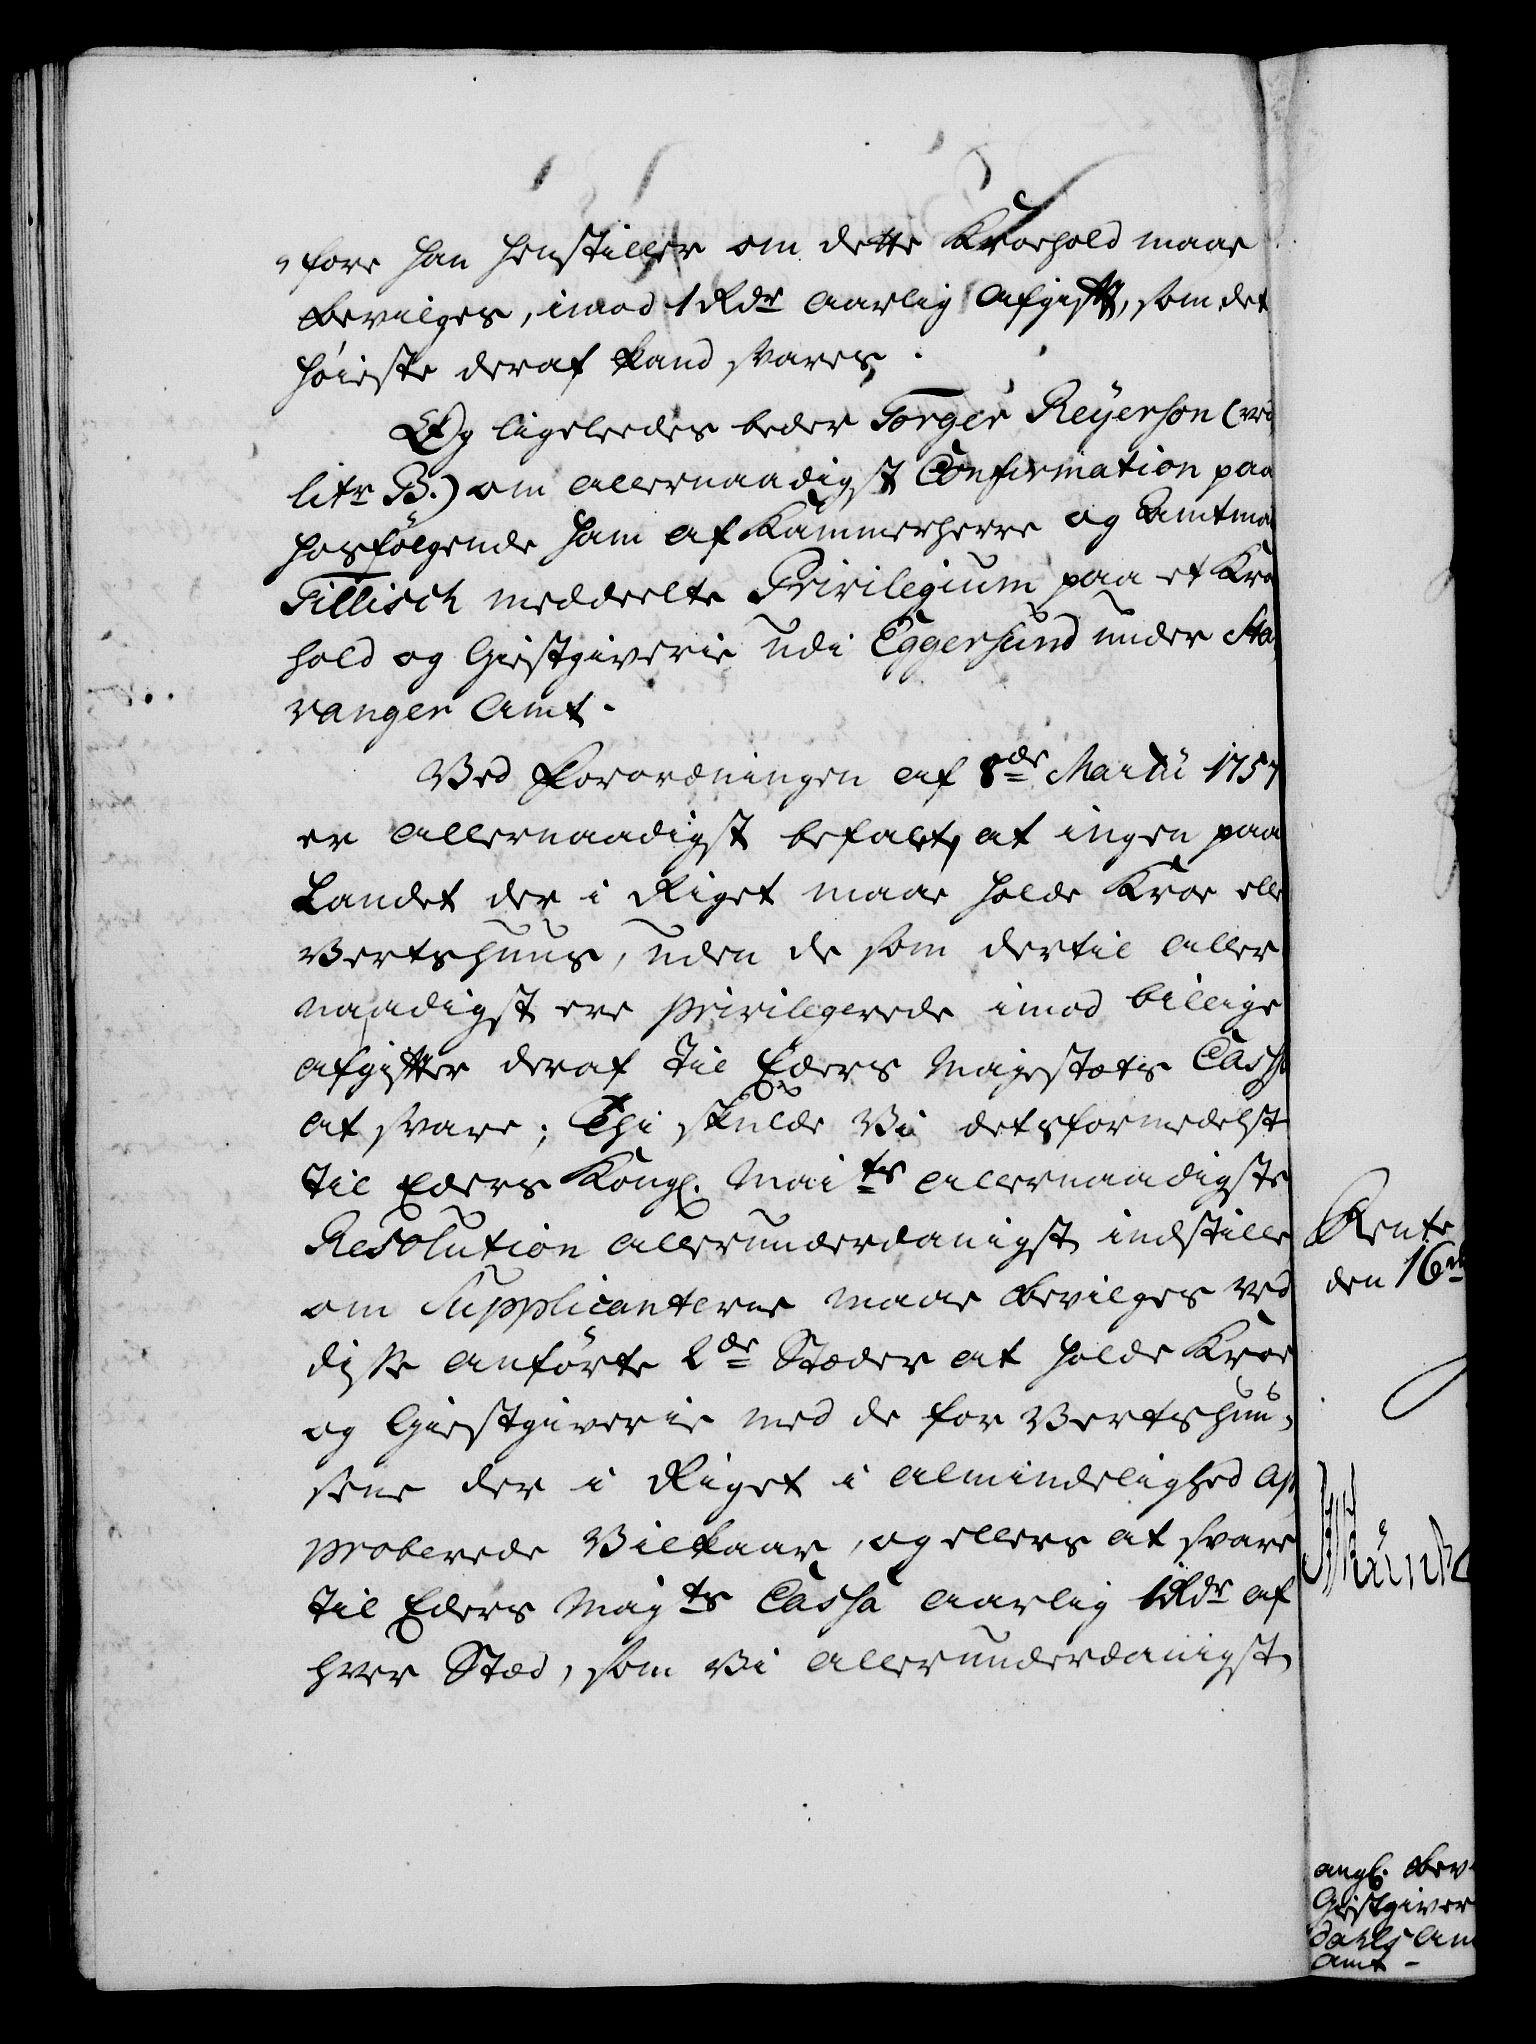 "fore han henstiller om dette Kroehold maae
bevilges, imod 1 Rdr aarlig Afgift, som det
høieste deraf kand svares.
Og ligeleedes beder Torger Reÿerson (vid
litr B.) om allernaadigst Confirmation paa
hosfølgende ham af Kammerherre og Amtmand
Tillisch meddeelte Privilegium paa et Kroe
hold og Giestgiverie udi Eggersund under Sta
vanger Amt.
Ved Forordningen af 8de Martii 1757
er allernaadigst befalet, at ingen paa
Landet der i Riget maae holde Kroe eller
Vertshuus, uden de som dertil aller
naadigst ere privilegerede imod billige
afgifter deraf til Eders Majestæts Cassa
at svare; Thi skulde Vi detsformedelst
til Eders Kongl. Maits allernaadigste
Resolution allerunderdanigst indstille
om Supplicanterne maae bevilges ved
disse anførte 2de Stæder at holde Kroe
og Giestgiverie med de for Vertshuu-
sene der i Riget i almindelighed ap
proberede Vilkaar, og ellers at svare
til Eders Mayts Cassa aarlig 1 Rdr af
hver Stæd, som Vi allerunderdanigst
Rente
den 16de
angl. bev
Giestgiver
dahls Am
Amt -